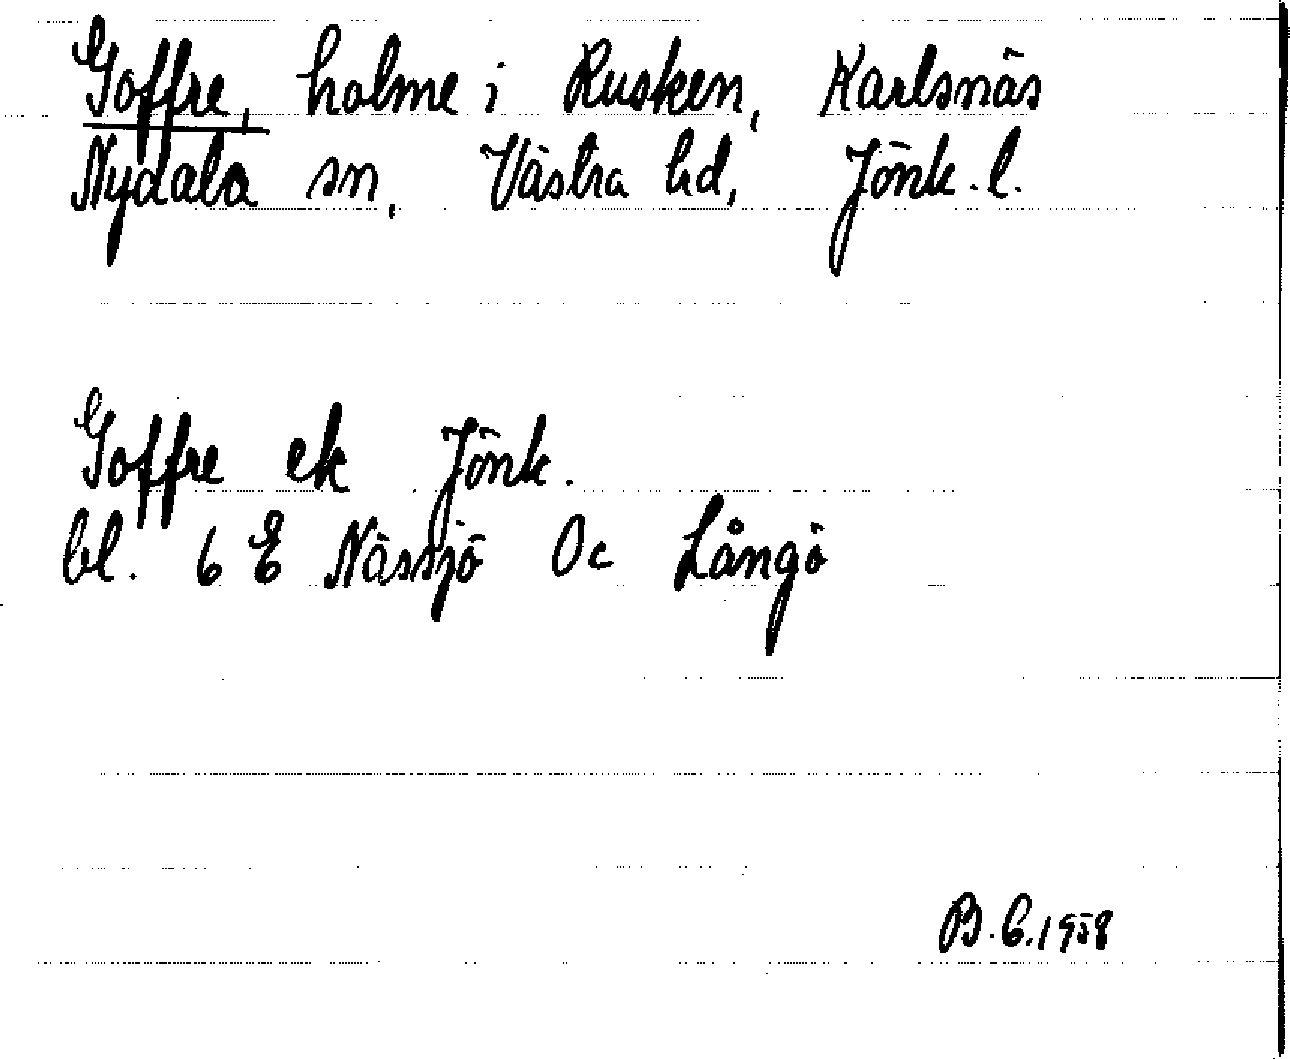 Goffre, holme i Rusken, Karlsnäs
Nydala sn, Västra hd, Jönk. l.
Goffre ek Jönk.
bl. 6 E Nässjö Oc Långö
B.C. 1958